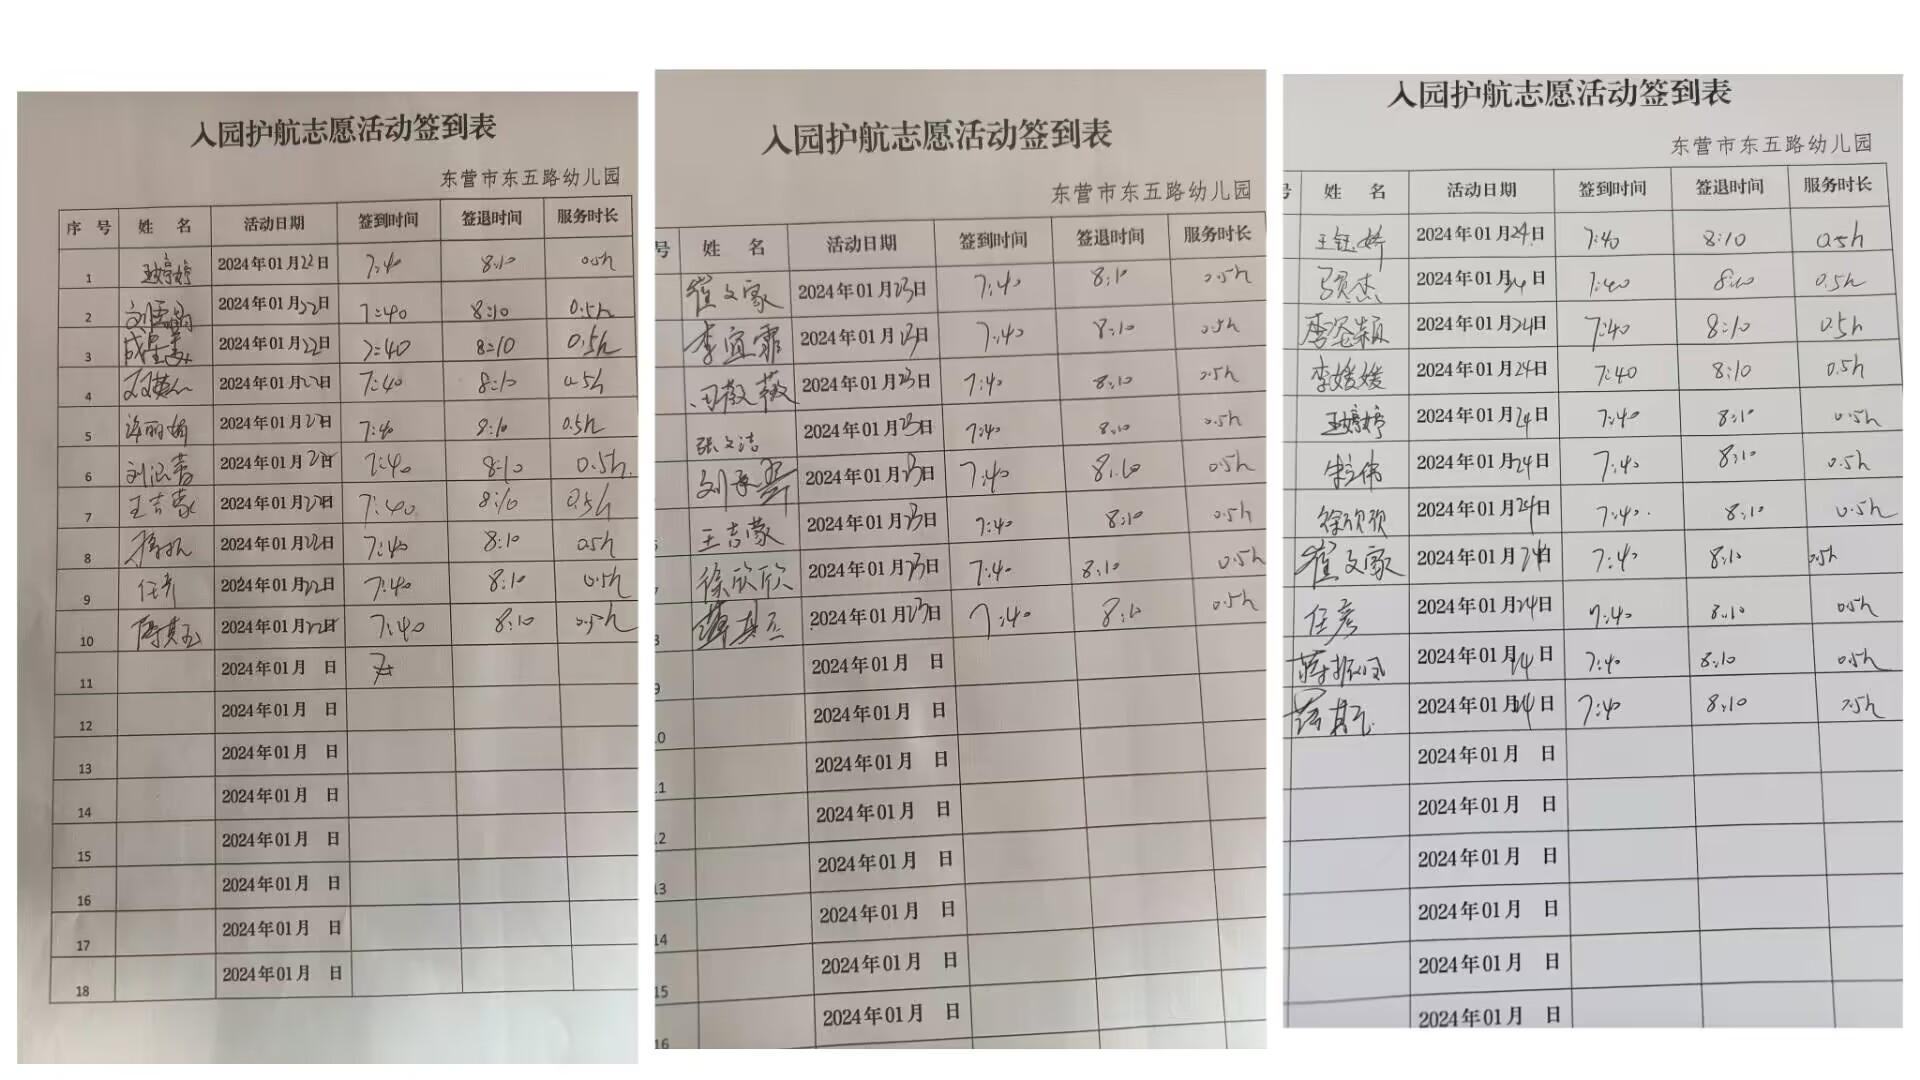 入园护航志愿活动签到表
东营市东五路幼儿园
序 号 姓 名 活动日期 签到时间 签退时间 服务时长
1 王婷婷 2024年01月22日 7:40 8:10 0.5h
2 2024年01月22日 7:40 8:10 0.5h
3 2024年01月22日 7:40 8:10 0.5h
4 2024年01月22日 7:40 8:10 0.5h
5 2024年01月22日 7:40 8:10 0.5h
6 2024年01月22日 7:40 8:10 0.5h.
7 王吉蒙 2024年01月22日 7:40 8:10 0.5h
8 2024年01月22日 7:40 8:10 0.5h
9 任彦 2024年01月22日 7:40 8:10 0.5h
10 2024年01月22日 7:40 8:10 0.5h
11 2024年01月 日
12 2024年01月 日
13 2024年01月 日
14 2024年01月 日
15 2024年01月 日
16 2024年01月 日
17 2024年01月 日
18 2024年01月 日
入园护航志愿活动签到表
东营市东五路幼儿园
号 姓 名 活动日期 签到时间 签退时间 服务时长
崔文家 2024年01月23日 7:40 8:10 0.5h
李宜霏 2024年01月23日 7:40 8:10 0.5h
2024年01月23日 7:40 8:10 0.5h
张文洁 2024年01月23日 7:40 8:10 0.5h
2024年01月23日 7:40 8:10 0.5h
王吉蒙 2024年01月23日 7:40 8:10 0.5h
徐欣欣 2024年01月23日 7:40 8:10 0.5h
2024年01月23日 7:40 8:10 0.5h
9 2024年01月 日
0 2024年01月 日
1 2024年01月 日
12 2024年01月 日
13 2024年01月 日
14 2024年01月 日
15 2024年01月 日
16 2024年01月 日
入园护航志愿活动签到表
东营市东五路幼儿园
号 姓 名 活动日期 签到时间 签退时间 服务时长
王钰婷 2024年01月24日 7:40 8:10 0.5h
2024年01月24日 7:40 8:10 0.5h
2024年01月24日 7:40 8:10 0.5h
李媛媛 2024年01月24日 7:40 8:10 0.5h
王婷婷 2024年01月24日 7:40 8:10 0.5h
宋立伟 2024年01月24日 7:40 8:10 0.5h
徐欣欣 2024年01月24日 7:40 8:10 0.5h
崔文家 2024年01月24日 7:40 8:10 0.5h
任彦 2024年01月24日 7:40 8:10 0.5h
2024年01月24日 7:40 8:10 0.5h
2024年01月24日 7:40 8:10 0.5h
2024年01月 日
2024年01月 日
2024年01月 日
2024年01月 日
2024年01月 日
2024年01月 日